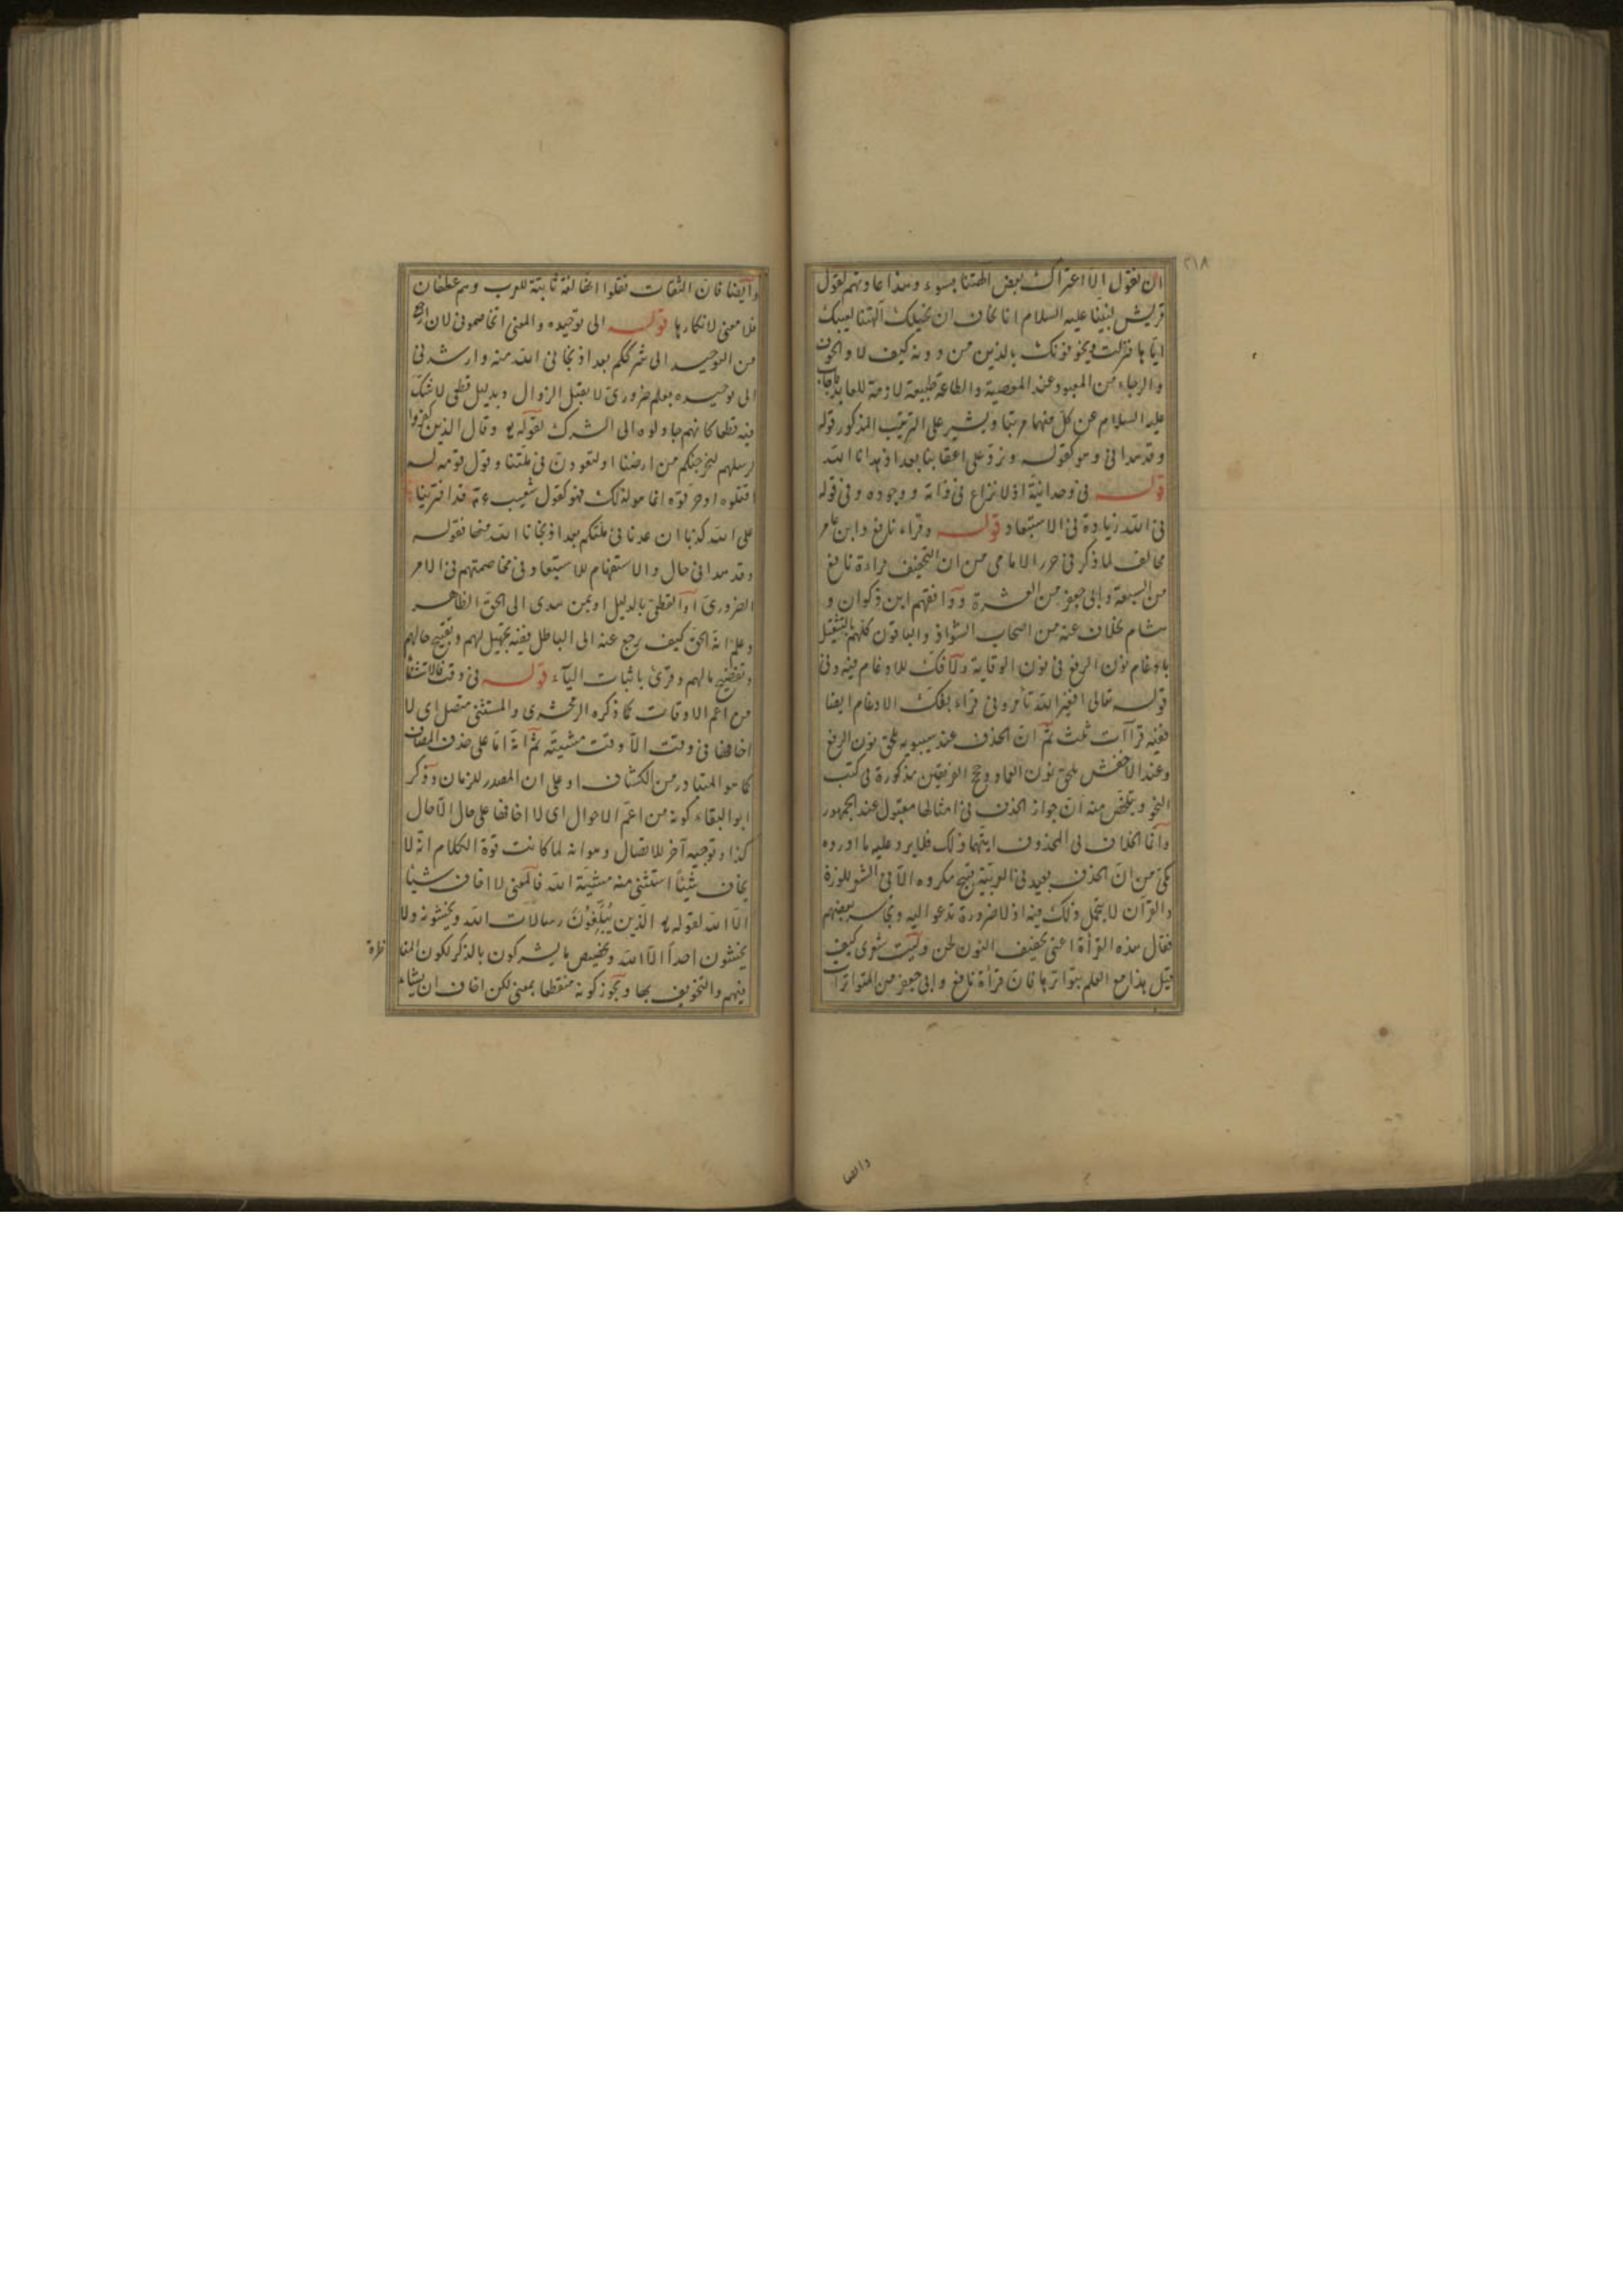 ٢١٨
ان نقول الا اعتراك بعض الهتنا بسوء وهذا عادتهم لقول
قريش لنبينا عليه السلام انا نخاف ان تخبلك آلهتنا لعيبك
اياها فنزلت ويخوفونك بالذين من دونه كيف لا والخوف
والرجاء من المعبود عند المعصية والطاعة طبيعة لازمة للعابد
عليه السلام عن كل منهما مرتبا ويشير على الترتيب المذكور قوله
وقد هدانى وهو كقوله ونرد على اعقابنا بعد اذ هدانا الله
قوله فى وحدانية اذ لا نزاع فى ذاته ووجوده وفى قوله
فى الله زيادة فى الاستبعاد قوله وقراء نافع وابن عامر
مخالف لما ذكر فى حرز الامانى من ان التخفيف قراءة نافع
من السبعة وابى جعفر من العشرة ووافقهم ابن ذكوان و
هشام بخلاف عنه من اصحاب الشواذ والباقون كلهم بالتثقيل
بادغام نون الرفع فى نون الوقاية ولا فك للادغام فيه وفى
قوله تعالى افغير الله تأمرونى قراء بفك الادغام ايضا
ففيه قراآت ثلث ثم ان الحذف عند سيبويه يلحق نون الرفع
وعند الاخفش يلحق نون العماد وحجج الفريقين مذكورة فى كتب
النحو ويتلخص منه ان جواز الحذف فى امثالها مقبول عند الجمهور
وانما الخلاف فى المحذوف ايتهما ذلك فلا يرد عليه ما اورده
مكى من ان الحذف بعيد فى العربية قبيح مكروه الا فى الشعر للوزن
والقرآن لا يتحمل ذلك فيه اذ لا ضرورة تدعو اليه وتجاسر بعضهم
فقال هذه القرأة اعنى تخفيف النون لحن وليت شعرى كيف
قيل هذا مع العلم بتواترها فان قرأة نافع وابى جعفر من المتواترات
وايضا
وايضا فان الثقات نقلوا انها لغة ثابتة للعرب وهم غطفان
فلا معنى لانكارها قوله الى توحيده والمعنى اتخاصمونى لان ارجع
من التوحيد الى شرككم بعد اذ نجانى الله منه وارشدنى
الى توحيده بعلم ضرورى لا يقبل الزوال وبدليل قطعى لا شك
فيه قطعا كانهم حاولوه الى الشرك لقوله يو وقال الذين كفروا
لرسلهم لنخرجنكم من ارضنا او لتعودن فى ملتنا وقول قومه له
اقتلوه او حرقوه انما هو لذلك فهو كقول شعيب عم قد افترينا
على الله كذبا ان عدنا فى ملتكم بعد اذ نجانا الله منها فقوله
وقد هدانى حال والاستفهام للاستبعاد وفى مخاصمتهم فى الامر
الضرورى او القطعى بالدليل او بمن هدى الى الحق الظاهر
وعلم انه الحق كيف يرجع عنه الى الباطل ففيه تجهيل لهم وتقبيح حالهم
وتفضيح مالهم وقرئ باثبات الياء قوله فى وقت فالاستثناء
من اعم الاوقات كما ذكره الزمخشرى والمستثنى متصل اى لا
اخافها فى وقت الا وقت مشيته ثم انه اما على حذف المضاف
كما هو المتبادر من الكشاف او على ان المصدر للزمان وذكر
ابو البقاء كونه من اعم الاحوال اى لا اخافها على حال الا حال
كذا وتوجيه آخر للاتصال وهو انه لما كانت قوة الكلام انه لا
يخاف شيئا استثنى منه مشيئة الله فالمعنى لا اخاف شيئا
الا الله لقوله يو الذين يبلغون رسالات الله ويخشونه ولا
يخشون احدا الا الله وتخصيص ما يشركون بالذكر لكون المنا
ظرة
فيهم والتخويف بها ويجوز كونه منقطعا بمعنى لكن اخاف ان يشاء